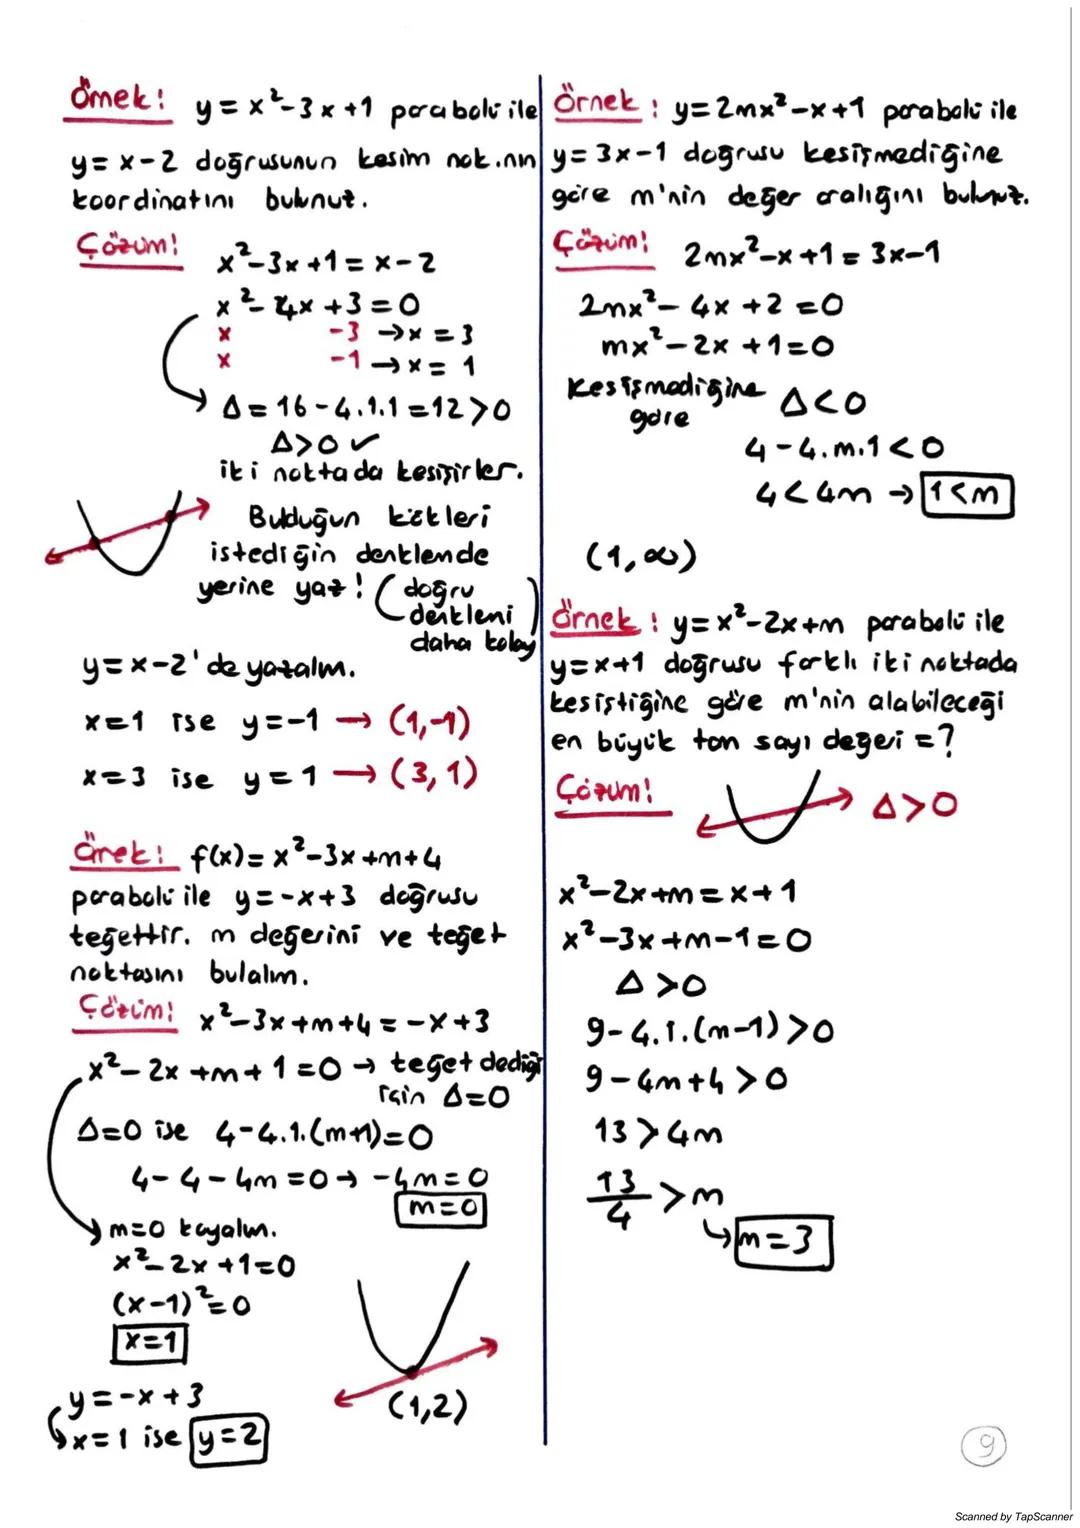 Örnek: y = x² - 3x + 1 parabolü ile
y = x - 2 doğrusunun kesim nok.nın
koordinatını bulunuz.
Çözüm:
x² - 3x + 1 = x - 2
x² - 4x + 3 = 0
x -3 → x = 3
x -1 → x = 1
Δ = 16 - 4.1.1 = 12 > 0
Δ > 0 ✓
iki noktada kesişirler.
Bulduğun kökleri
istediğin denklemde
yerine yaz! (doğru
denklemi
daha kolay)
y = x - 2' de yazalım.
x = 1 ise y = -1 → (1, -1)
x = 3 ise y = 1 → (3, 1)
Örnek: f(x) = x² - 3x + m + 4
parabolü ile y = -x + 3 doğrusu
teğettir. m değerini ve teğet
noktasını bulalım.
Çözüm: x² - 3x + m + 4 = -x + 3
x² - 2x + m + 1 = 0 → teğet dediği
için Δ = 0
Δ = 0 ise 4 - 4.1.(m+1) = 0
4 - 4 - 4m = 0 → -4m = 0
m = 0
m = 0 koyalım.
x² - 2x + 1 = 0
(x - 1)² = 0
x = 1
y = -x + 3
x = 1 ise y = 2
(1,2)
Örnek: y = 2mx² - x + 1 parabolü ile
y = 3x - 1 doğrusu kesişmediğine
göre m'nin değer aralığını bulunuz.
Çözüm: 2mx² - x + 1 = 3x - 1
2mx² - 4x + 2 = 0
mx² - 2x + 1 = 0
Kesişmediğine
göre Δ < 0
4 - 4.m.1 < 0
4 < 4m → 1 < m
(1, ∞)
Örnek: y = x² - 2x + m parabolü ile
y = x + 1 doğrusu farklı iki noktada
kesiştiğine göre m'nin alabileceği
en büyük tam sayı değeri = ?
Çözüm:
Δ > 0
x² - 2x + m = x + 1
x² - 3x + m - 1 = 0
Δ > 0
9 - 4.1.(m - 1) > 0
9 - 4m + 4 > 0
13 > 4m
13/4 > m
m = 3
9
Scanned by TapScanner